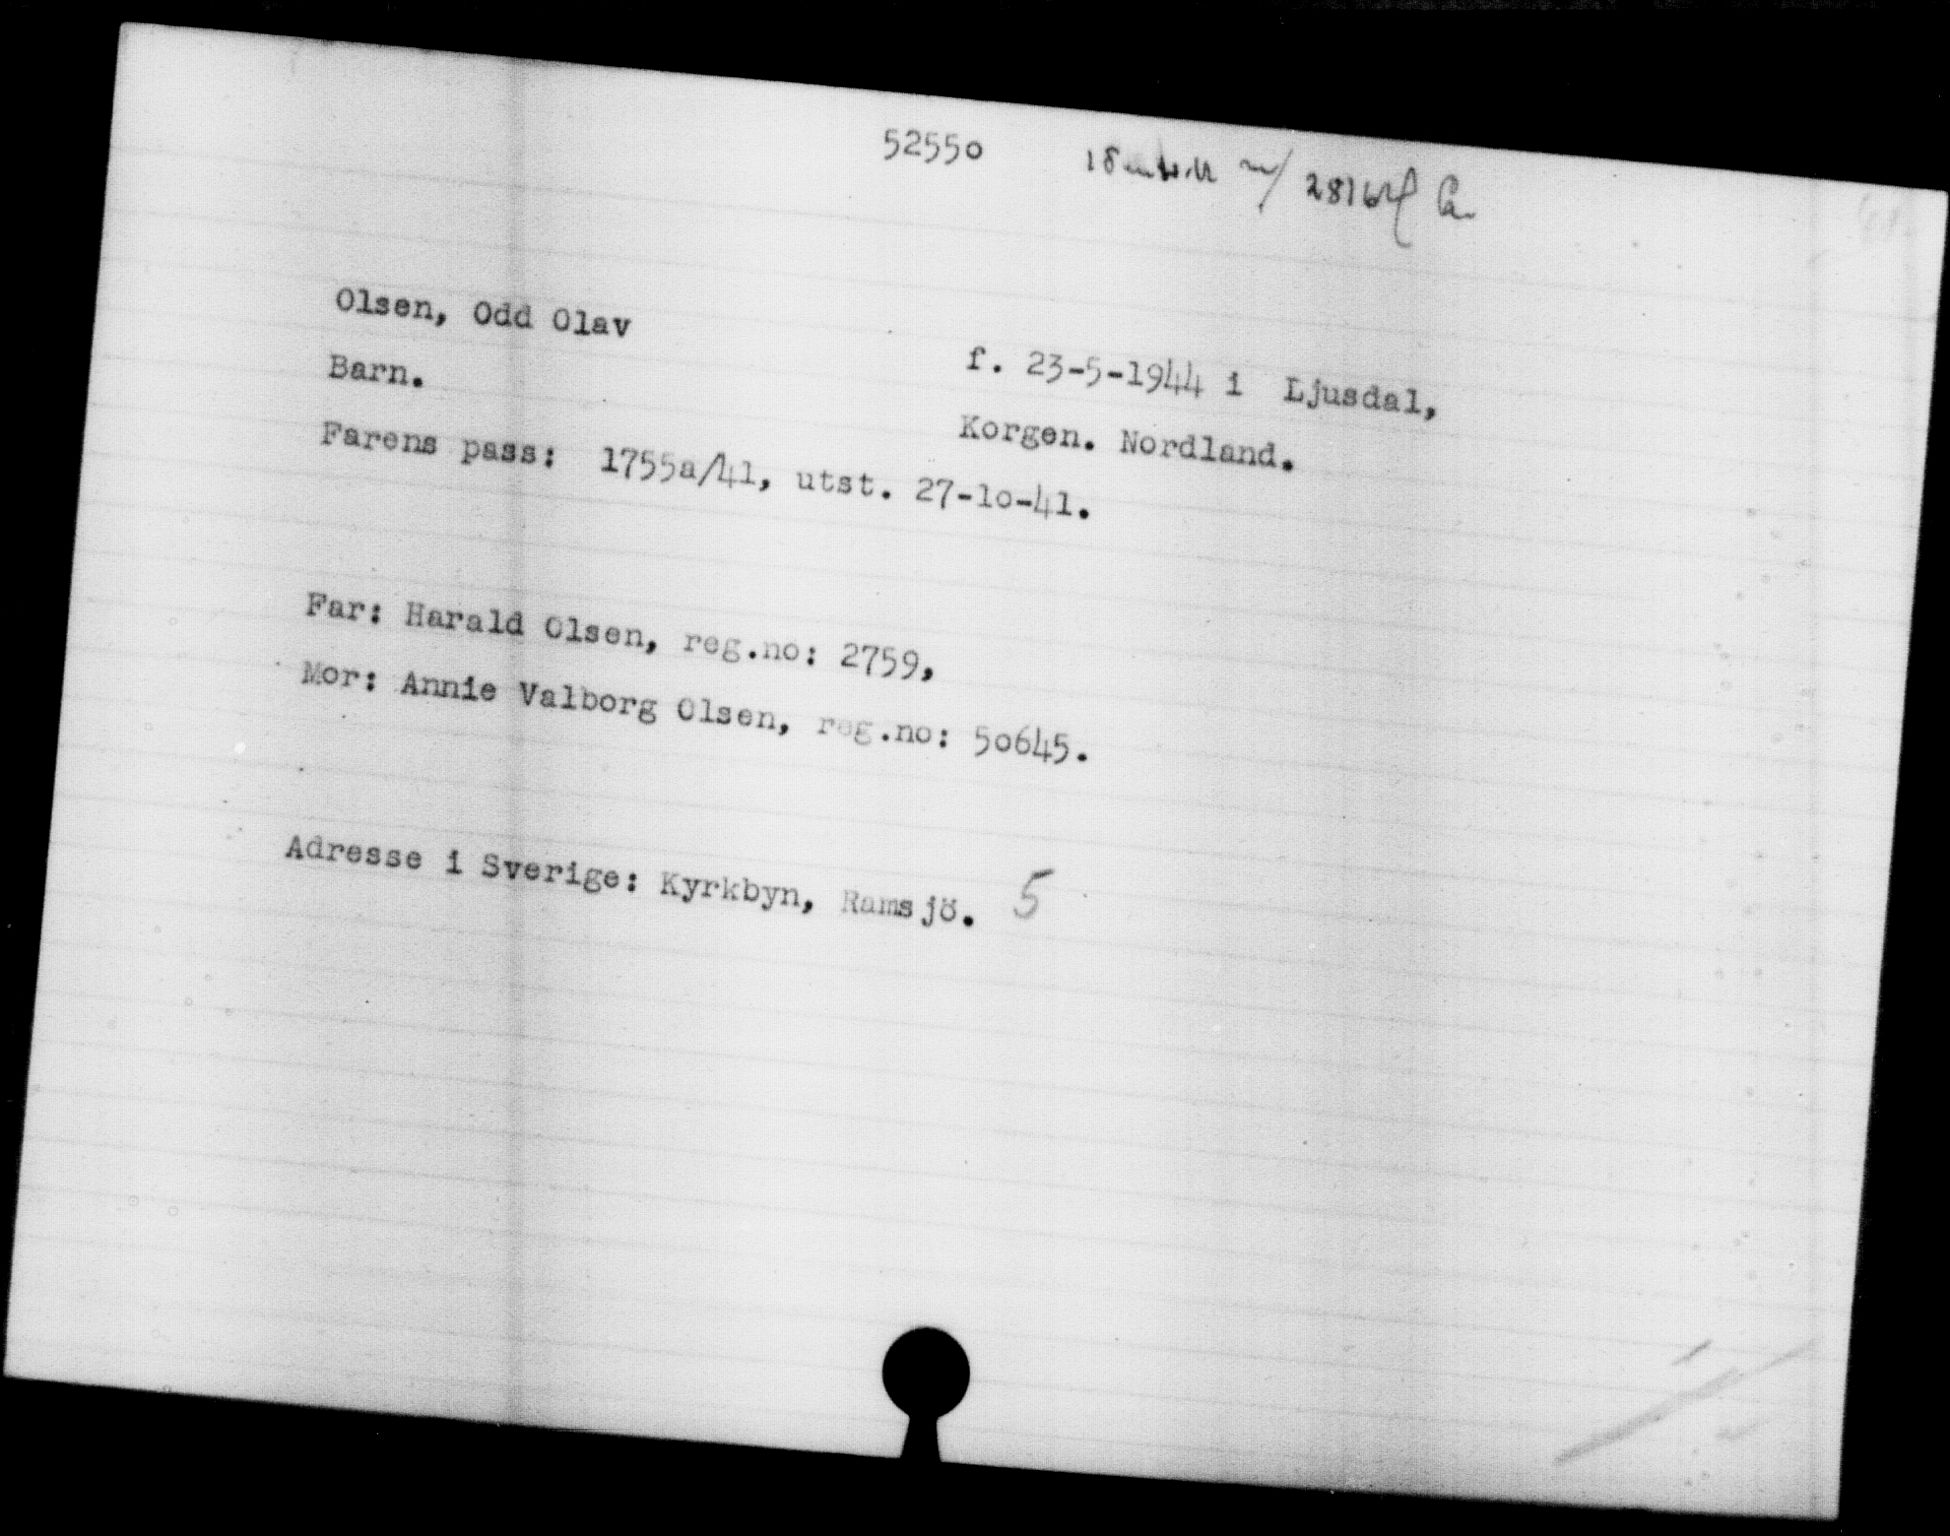 52550
Olsen, Odd Olav
Barn.
f. 23-5-1944 i Ljusdal,
Korgen. Nordland.
Farens pass: 1755a/41, utst. 27-10-41.
Far: Harald Olsen, reg.no: 2759,
Mor: Annie Valborg Olsen, reg.no: 50645.
Adresse i Sverige: Kyrkbyn, Ramsjö. 5